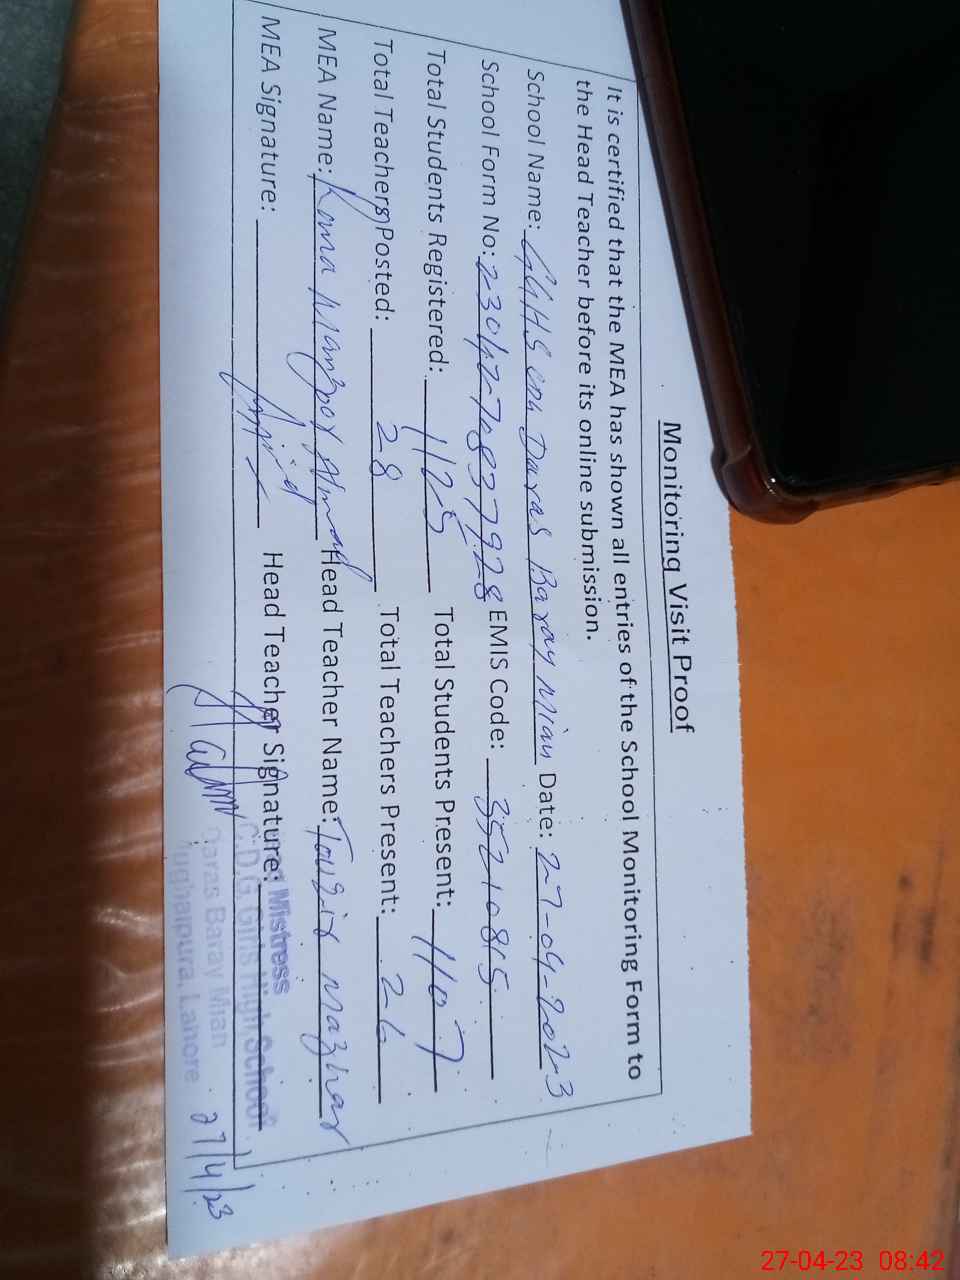 Monitoring Visit Proof
It is certified that the MEA has shown all entries of the School Monitoring Form to
the Head Teacher before its online submission.
School Name: GGHS Daras Baray Mian Date: 27-04-2023
School Form No: EMIS Code: 35210815
Total Students Registered: 1125 Total Students Present: 1107
Total Teachers Posted: 28 Total Teachers Present: 26
MEA Name: Rana Manzoor Ahmad Head Teacher Name: Mazhar
MEA Signature: Head Teacher Signature:
Mistress
C.D.G. Girls High School
Daras Baray Mian
Lahore
27/4/23
27-04-23 08:42